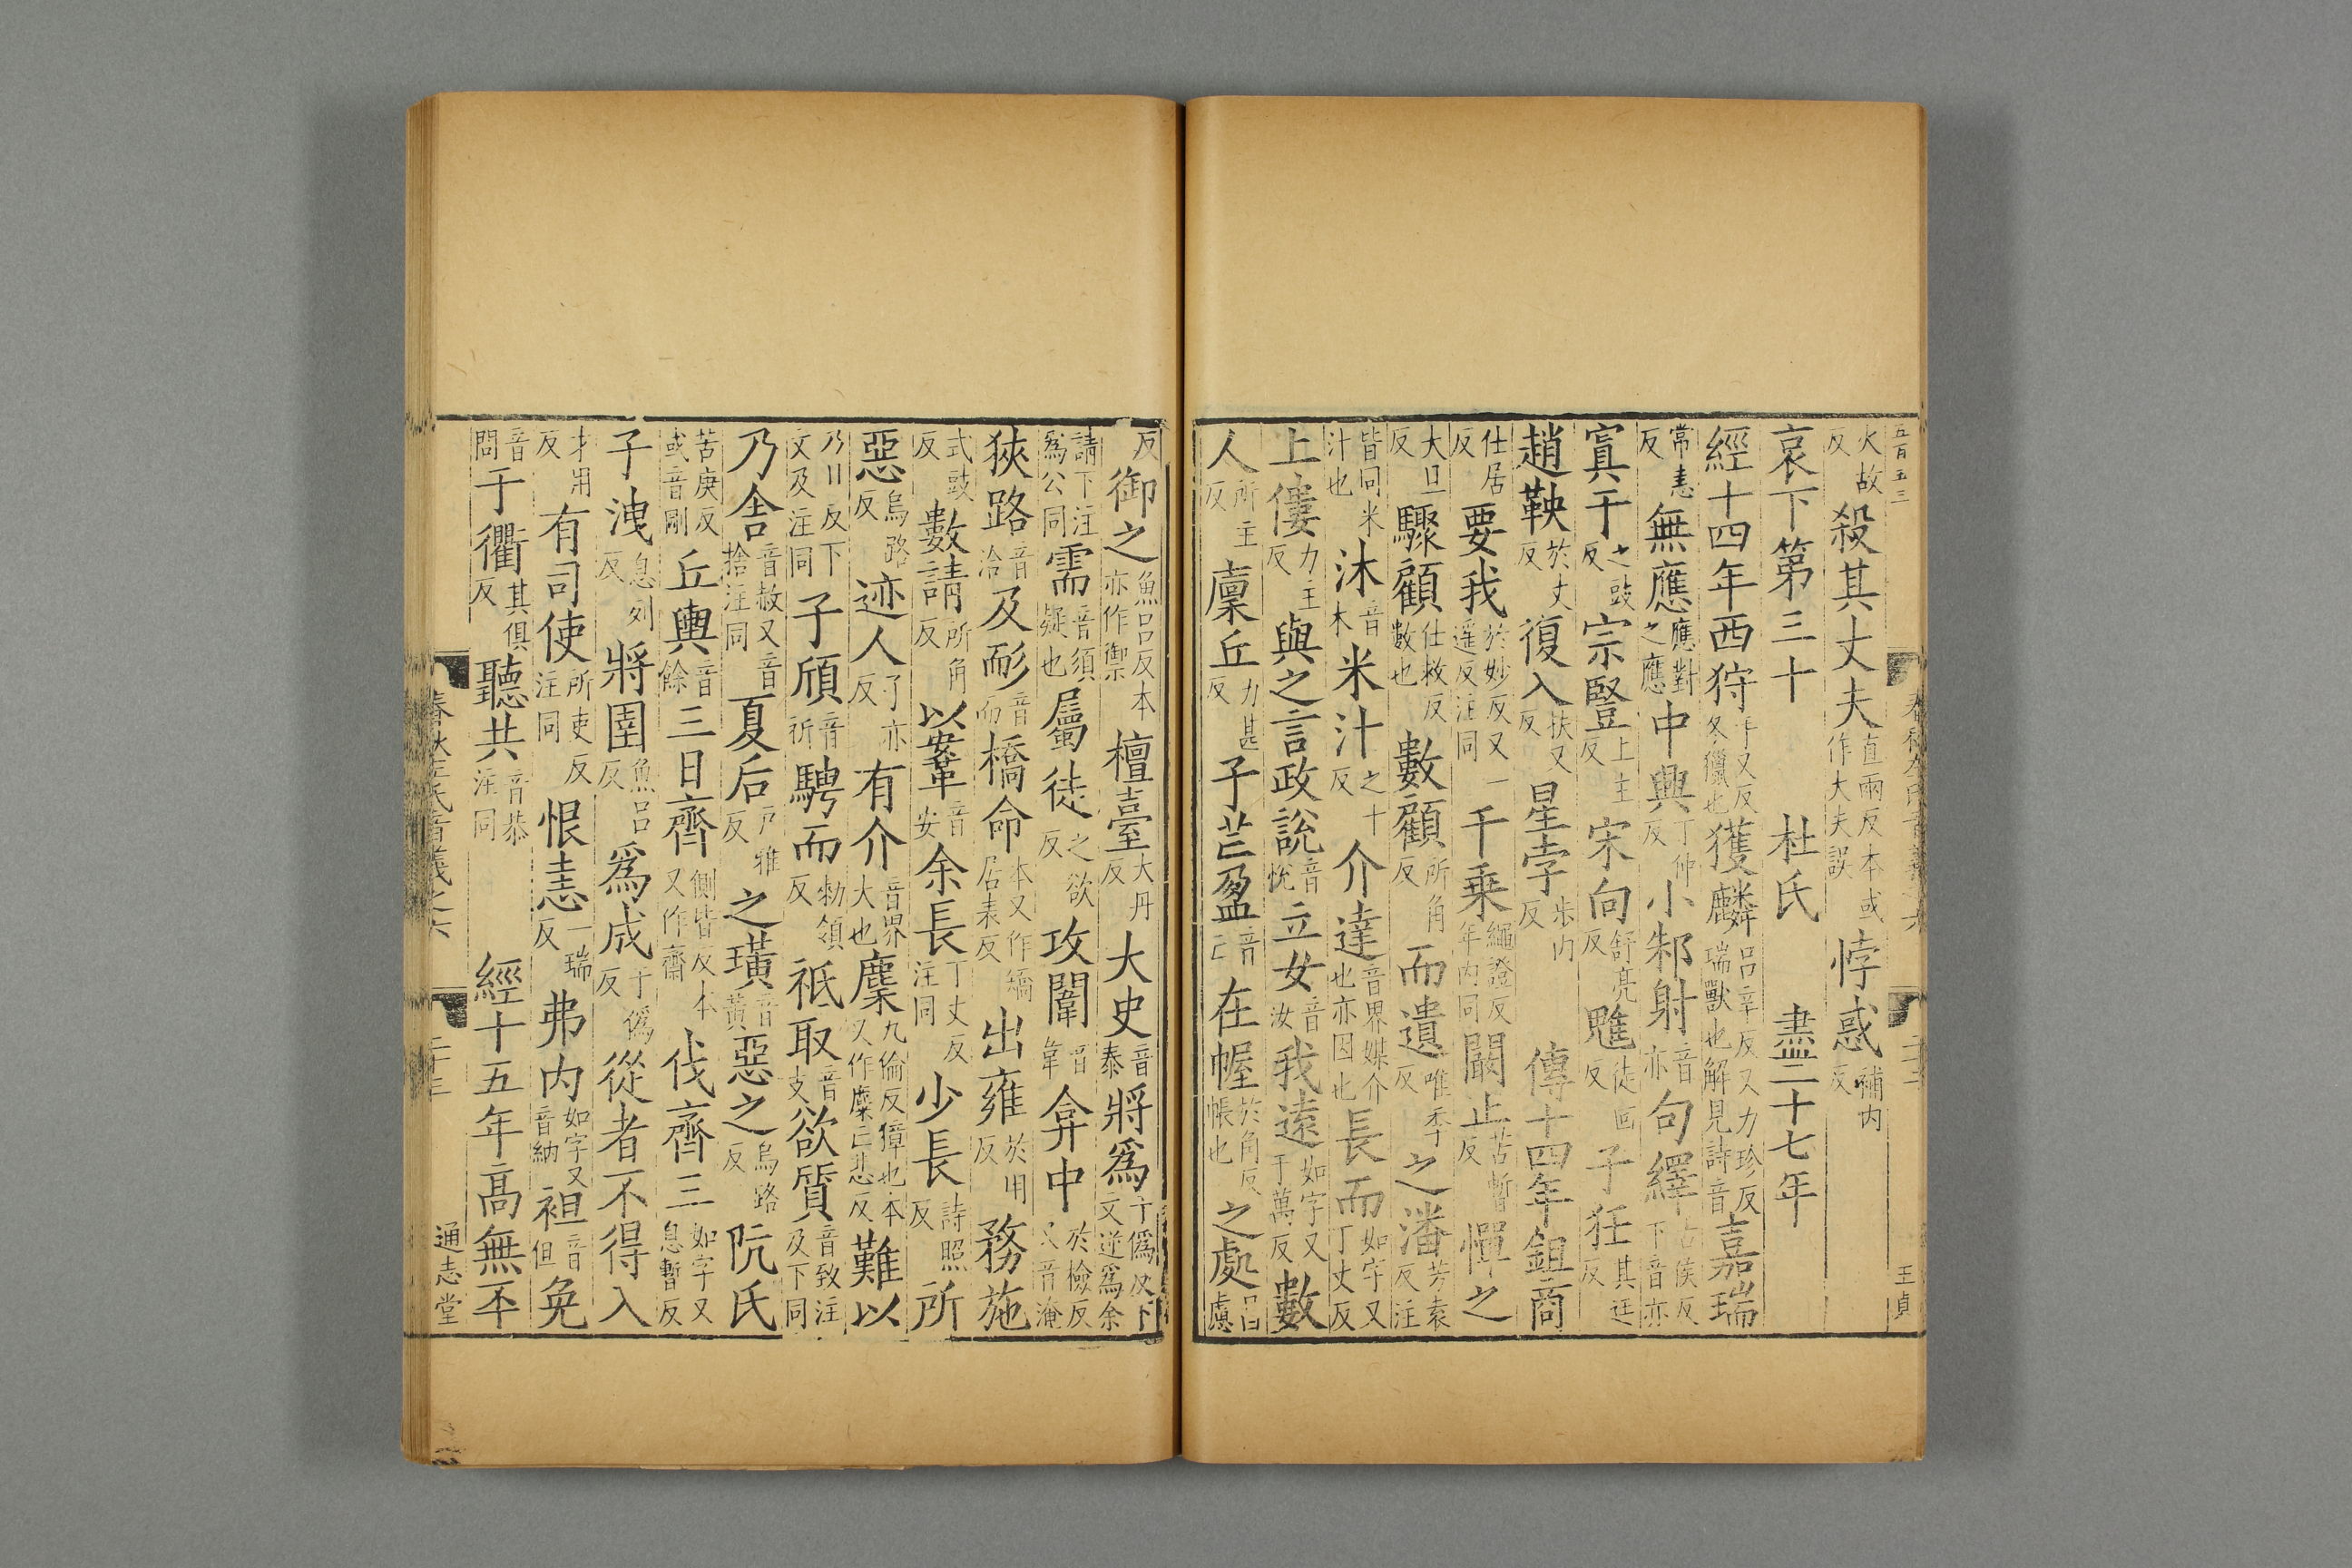 五百五三 春秋左氏音義之六 二十二 王貞
火故反殺其丈夫直兩反本或作大夫誤悖惑補內反
哀下第三十 杜氏 盡二十七年
經十四年西狩手又反冬獵也獲麟呂辛反又力珍反瑞獸也解見詩音嘉瑞
常恚反無應應對之應中興丁仲反小邾射音亦句繹古侯反下音亦
寘于之豉反宗豎上主反宋向舒亮反魋徒回反子狂其廷反
趙鞅於丈反復入扶又反星孛步內反 傳十四年鉏商
仕居反要我於妙反又一遥反注同千乘繩證反年內同闞止苦暫反憚之
大旦反驟顧仕救反數也數顧所角反而遺唯季反之潘芳袁反注
皆同米汁也沐音木米汁之十反介達音界媒介也亦因也長而如字又丁丈反
上僂力主反與之言政說音悅立女音汝我遠如字又于萬反數
人所主反廩丘力甚反子芒盈音亡在幄於角反帳也之處昌慮
反御之魚呂反本亦作禦檀臺大丹反大史音泰將爲于僞反下文逆爲余
請下注爲公同需音須疑也屬徒之欲反攻闈音韋弇中於檢反又音淹
狹路音洽及耏音而橋命本又作矯居表反出雍於用反務施
式豉反數請所角反以鞌音安余長丁丈反注同少長詩照反所
惡烏路反迹人了亦反有介音界大也麇九倫反獐也本又作麋亡悲反難以
乃旦反下文及注同子頎音祈騁而勑領反祇取音支欲質音致注及下同
乃舍音赦又音捨注同夏后戶雅反之璜音黃惡之烏路反阬氏
苦庚反或音剛丘輿音餘三日齊側皆反本又作齋伐齊三如字又息暫反
子洩息列反將圉魚呂反爲成于僞反從者不得入
才用反有司使所吏反注同恨恚一瑞反弗內如字又音納袒音但免
音問于衢其俱反聽共音恭注同 經十五年高無㔻
春秋左氏音義之六 二十二 通志堂